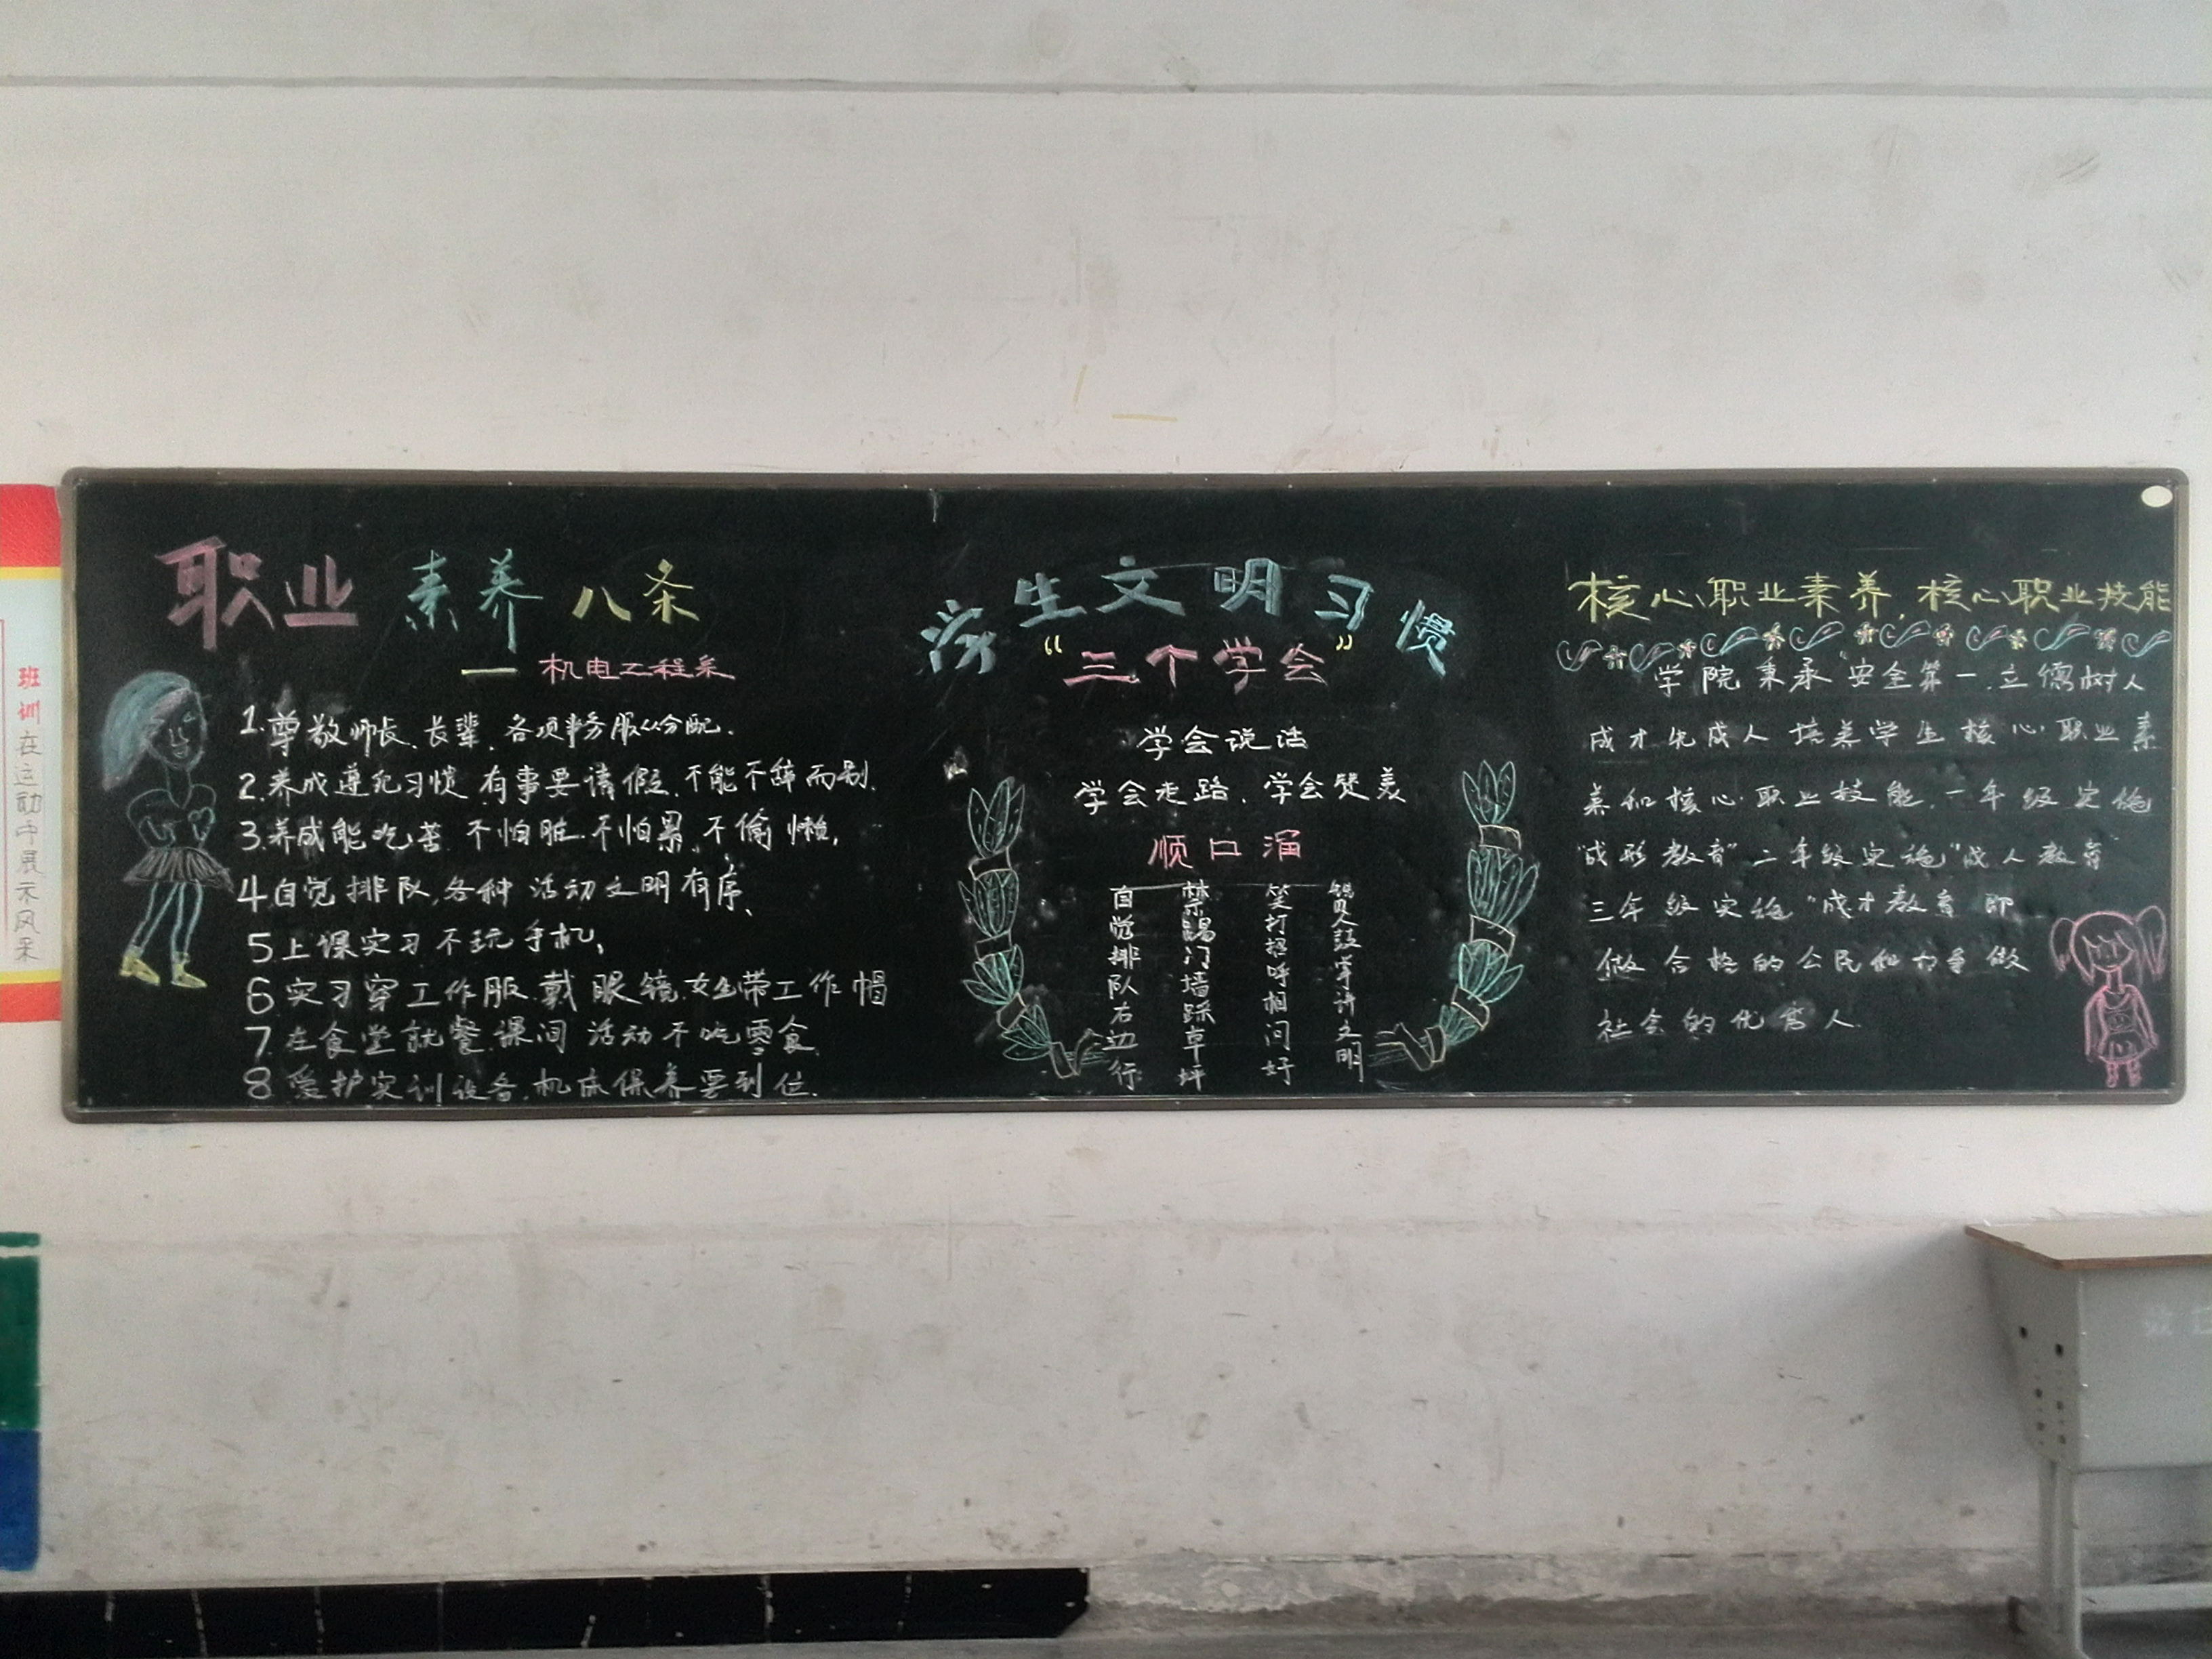 班训
在运动中展示风采
职业素养八条
— 机电工程系
1.尊敬师长、长辈、各项事务服从分配.
2.养成遵纪习惯 有事要请假.不能不辞而别.
3.养成能吃苦 不怕脏.不怕累、不偷懒,
4.自觉排队,各种活动文明有序、
5上课实习不玩手机,
6.实习穿工作服.戴眼镜.女生带工作帽
7.在食堂就餐.课间活动不吃零食.
8.爱护实训设备.机床保养要到位.
生文明习惯
“三个学会”
学会说话
学会走路、学会赞美
顺口溜
自觉排队右边行
禁踢门墙踩草坪
笑打招呼相问好
赞人鼓掌讲文明
核心职业素养,核心职业技能
学院秉承“安全第一.立儒树人
成才先成人 培养学生核心职业素
养和核心职业技能.一年级实施
“成形教育”二年级实施“成人教育”
三年级实施“成才教育 即
做合格的公民和力争做
社会的优秀人.